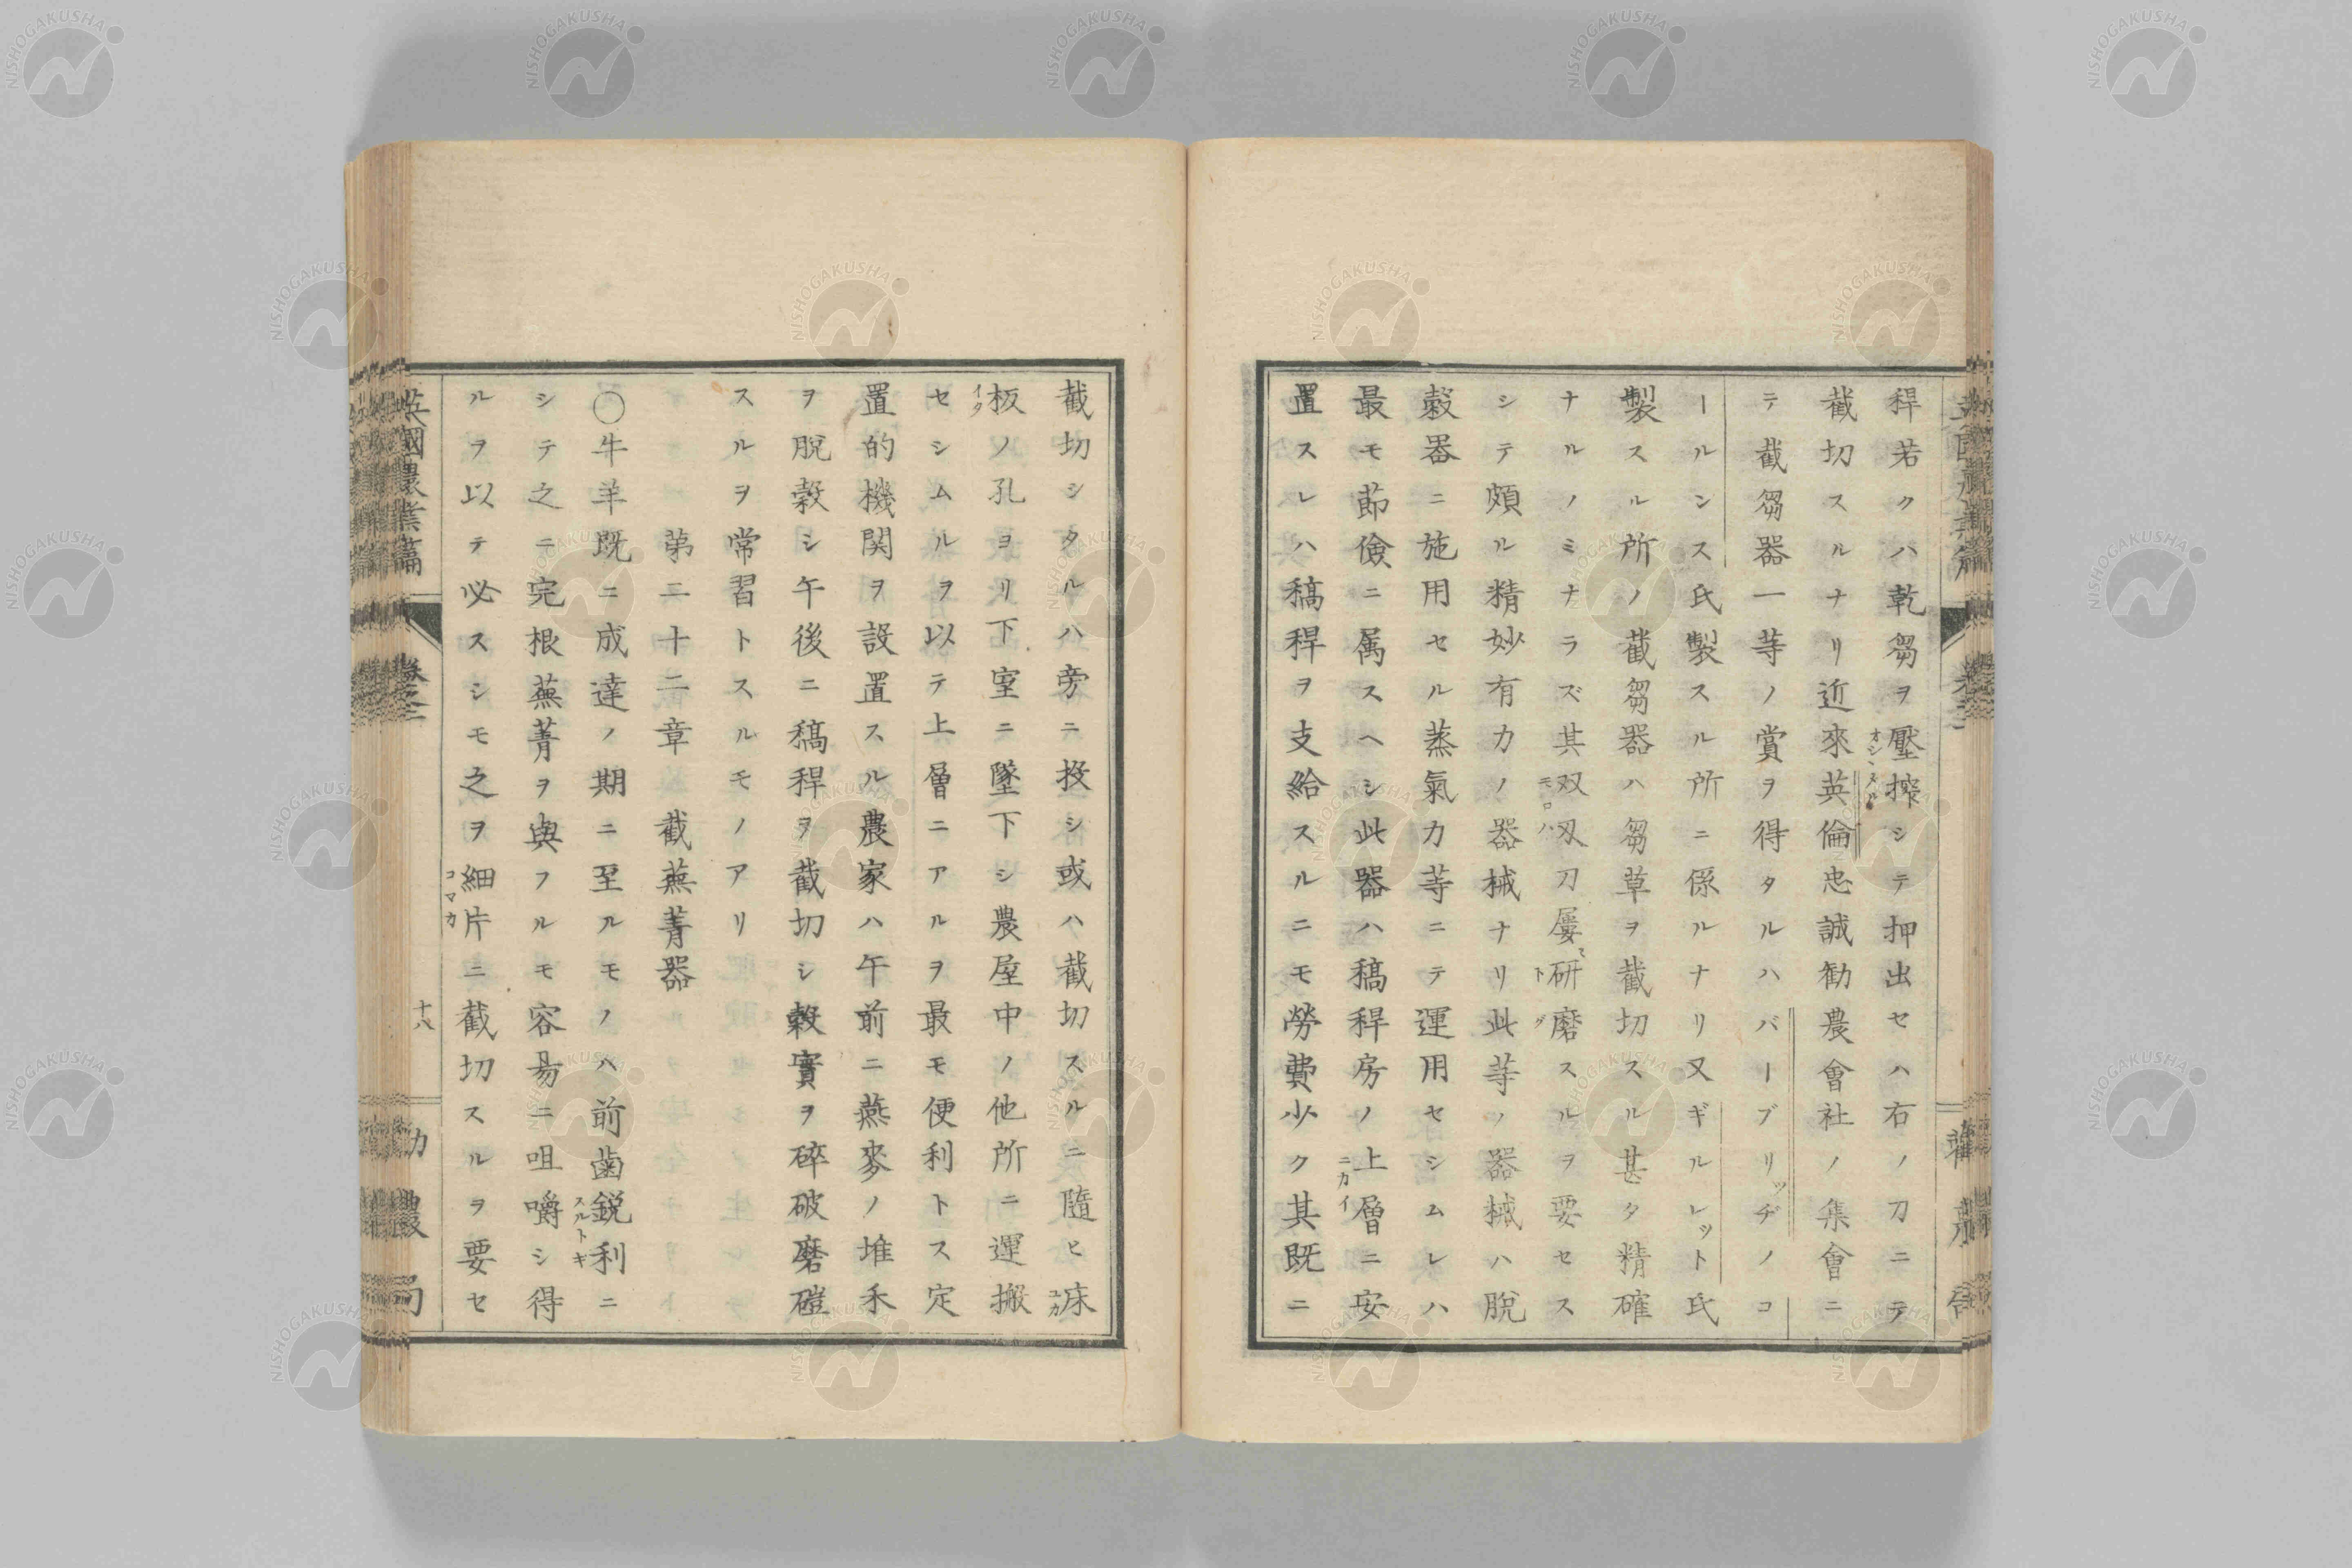 稈若クハ乾芻ヲ壓搾シテ押出セハ右ノ刀ニテ
截切スルナリ近來英倫忠誠勧農會社ノ集會ニ
テ截芻器一等ノ賞ヲ得タルハバーブリッヂノコ
ールンス氏製スル所ニ係ルナリ又ギルレット氏
製スル所ノ截芻器ハ芻草ヲ截切スル甚タ精確
ナルノミナラズ其双刄刀屢〻研磨スルヲ要セス
シテ頗ル精妙有力ノ器械ナリ此等ノ器械ハ脫
穀器ニ施用セル蒸氣力等ニテ運用セシムレハ
最モ節儉ニ属スヘシ此器ハ稿稈房ノ上層ニ安
置スレハ稿稈ヲ支給スルニモ勞費少ク其既ニ
截切シタルハ旁ニ投シ或ハ截切スルニ隨ヒ床
板ノ孔ヨリ下室ニ墜下シ農屋中ノ他所ニ運搬
セシムルヲ以テ上層ニアルヲ最モ便利トス定
置的機関ヲ設置スル農家ハ午前ニ燕麥ノ堆禾
ヲ脫穀シ午後ニ稿稈ヲ截切シ穀實ヲ碎破磨磑
スルヲ常習トスルモノアリ
第二十二章 截蕪菁器
〇牛羊既ニ成達ノ期ニ至ルモノハ前齒鋭利ニ
シテ之ニ完根蕪菁ヲ與フルモ容易ニ咀嚼シ得
ルヲ以テ必スシモ之ヲ細片ニ截切スルヲ要セ
英國農業篇 卷之三 十八 勧農局